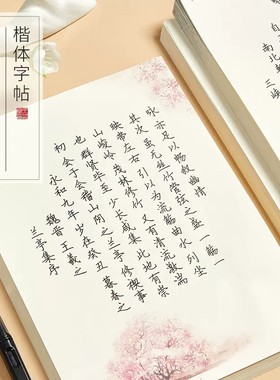 楷体字帖
兰亭集序
魏晋王羲之
永和九年岁在癸丑暮春之
初会于会稽山阴之兰亭修禊事
也群贤毕至少长咸集此地有崇
山峻岭茂林修竹又有清流激湍
映带左右引以为流觞曲水列坐
其次虽无丝竹管弦之盛一觞一
咏亦足以畅叙幽情